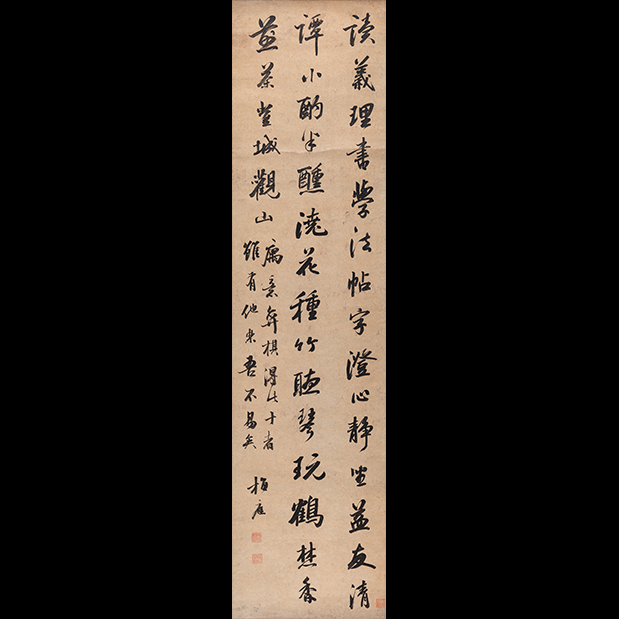 讀義理書學法帖字澄心靜坐益友清
譚小酌半醺澆花種竹聽琴玩鶴焚香
煎茶登城觀山
寓意弈棋得此十者
雖有他樂吾不易矣